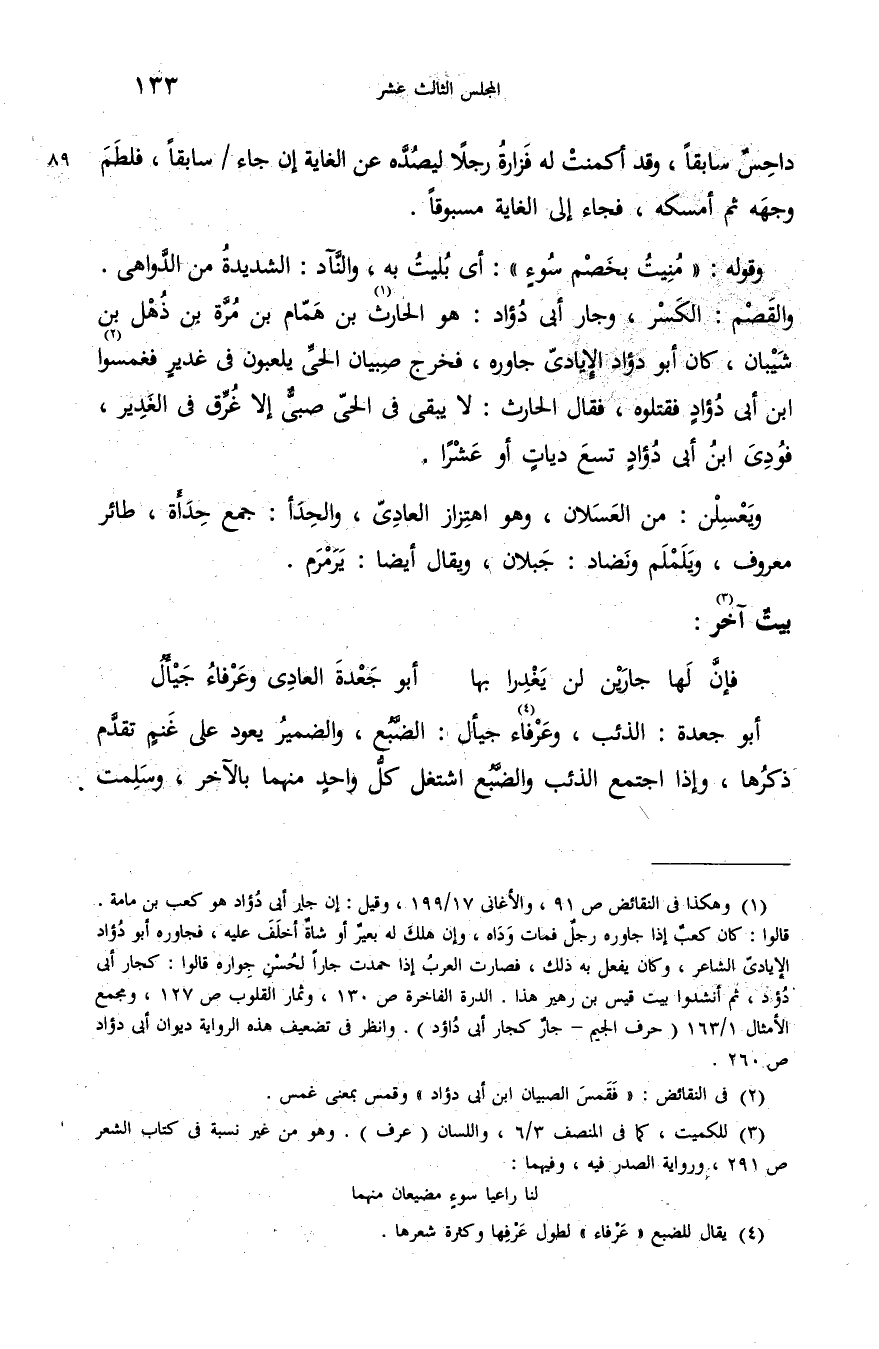 المجلس الثالث عشر ١٣٣
داحِسٌ سابقاً ، وقد أكمنتْ له فَزارةُ رجلًا ليصُدَّه عن الغاية إن جاء / سابقاً ، فلطَمَ ٨٩
وجهَه ثم أمسكه ، فجاء إلى الغاية مسبوقاً .
وقوله : « مُنِيتُ بخَصْم سُوءٍ » : أى بُليتُ به ، والنَّآد : الشديدةُ من الدَّواهى .
والقَصْم : الكَسْر ، وجار أبى دُؤاد : هو الحارثُ(١) بن هَمّام بن مُرَّة بن ذُهْل بن
شَيْبان ، كان أبو دؤاد الإيادىّ جاوره ، فخرج صِبيان الحىِّ يلعبون فى غديرٍ فغمسوا(٢)
ابن أبى دُؤادٍ فقتلوه ، فقال الحارث : لا يبقى فى الحىّ صبىٌّ إلا غُرِّق فى الغَدِير ،
فوُدِىَ ابنُ أبى دُؤادٍ تسعَ دياتٍ أو عَشْرًا .
ويَعْسِلْن : من العَسَلان ، وهو اهتِزاز العادِىّ ، والحِدَأ : جمع حِدَأَة ، طائر
معروف ، ويَلَمْلَم ونَضاد : جَبلان ، ويقال أيضا : يَرَمْرَم .
بيتٌ آخر(٣) :
فإنَّ لَها جارَيْن لن يَغْدِرا بها أبو جَعْدةَ العادِى وعَرْفاءُ جَيْأَلُ
أبو جعدة : الذئب ، وعَرْفاء(٤) جيأل : الضَّبُع ، والضميرُ يعود على غَنمٍ تقدَّم
ذكرُها ، وإذا اجتمع الذئب والضَّبُع اشتغل كلُّ واحدٍ منهما بالآخر ، وسَلِمت
(١) وهكذا فى النقائض ص ٩١ ، والأغانى ١٩٩/١٧ ، وقيل : إن جار أبى دُؤاد هو كعب بن مامة .
قالوا : كان كعبٌ إذا جاوره رجلٌ فمات وَدَاه ، وإن هلكَ له بعيرٌ أو شاةٌ أخلَفَ عليه ، فجاوره أبو دُؤاد
الإيادىّ الشاعر ، وكان يفعل به ذلك ، فصارت العربُ إذا حمدت جاراً لحُسْنِ جِواره قالوا : كجار أبى
دُؤاد ، ثم أنشدوا بيت قيس بن زهير هذا . الدرة الفاخرة ص ١٣٠ ، وثمار القلوب ص ١٢٧ ، ومجمع
الأمثال ١٦٣/١ ( حرف الجيم – جارٌ كجار أبى دُاوُد ) . وانظر فى تضعيف هذه الرواية ديوان أبى دؤاد
ص ٢٦٠ .
(٢) فى النقائض : « فَقَمسَ الصبيان ابن أبى دؤاد » وقمس بمعنى غمس .
(٣) للكميت ، كما فى المنصف ٦/٣ ، واللسان ( عرف ) . وهو من غير نسبة فى كتاب الشعر
ص ٢٩١ ، ورواية الصدر فيه ، وفيهما :
لنا راعيا سوءٍ مضيعان منهما
(٤) يقال للضبع « عَرْفاء » لطول عَرْفِها وكثرة شعرها .